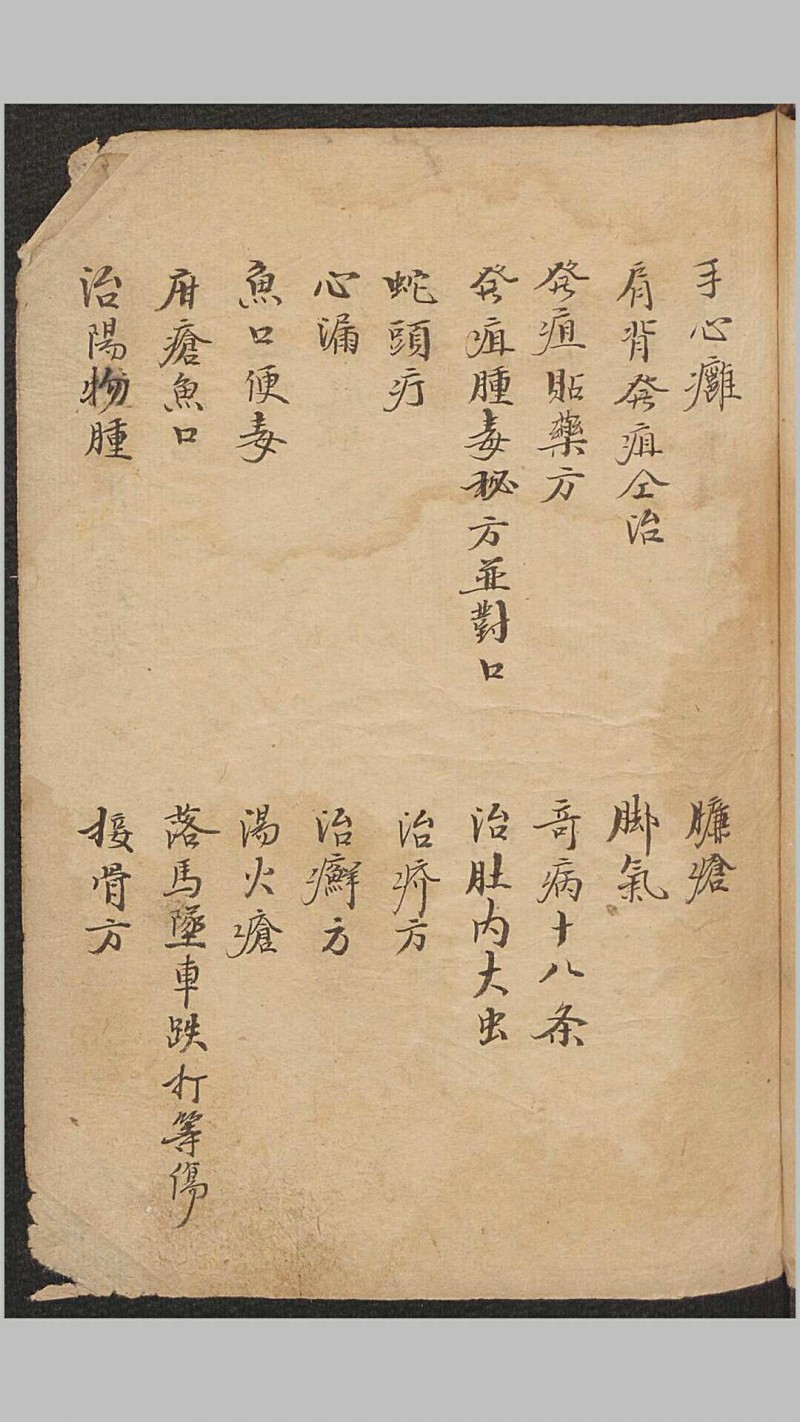 手心癰
肩背發疽仝治
發疽貼藥方
發疽腫毒秘方並對口
蛇頭疔
心漏
魚口便毒
疳瘡魚口
治陽物腫
臁瘡
脚氣
奇病十八条
治肚内大虫
治疥方
治癬方
湯火瘡
落馬墜車跌打等傷
接骨方